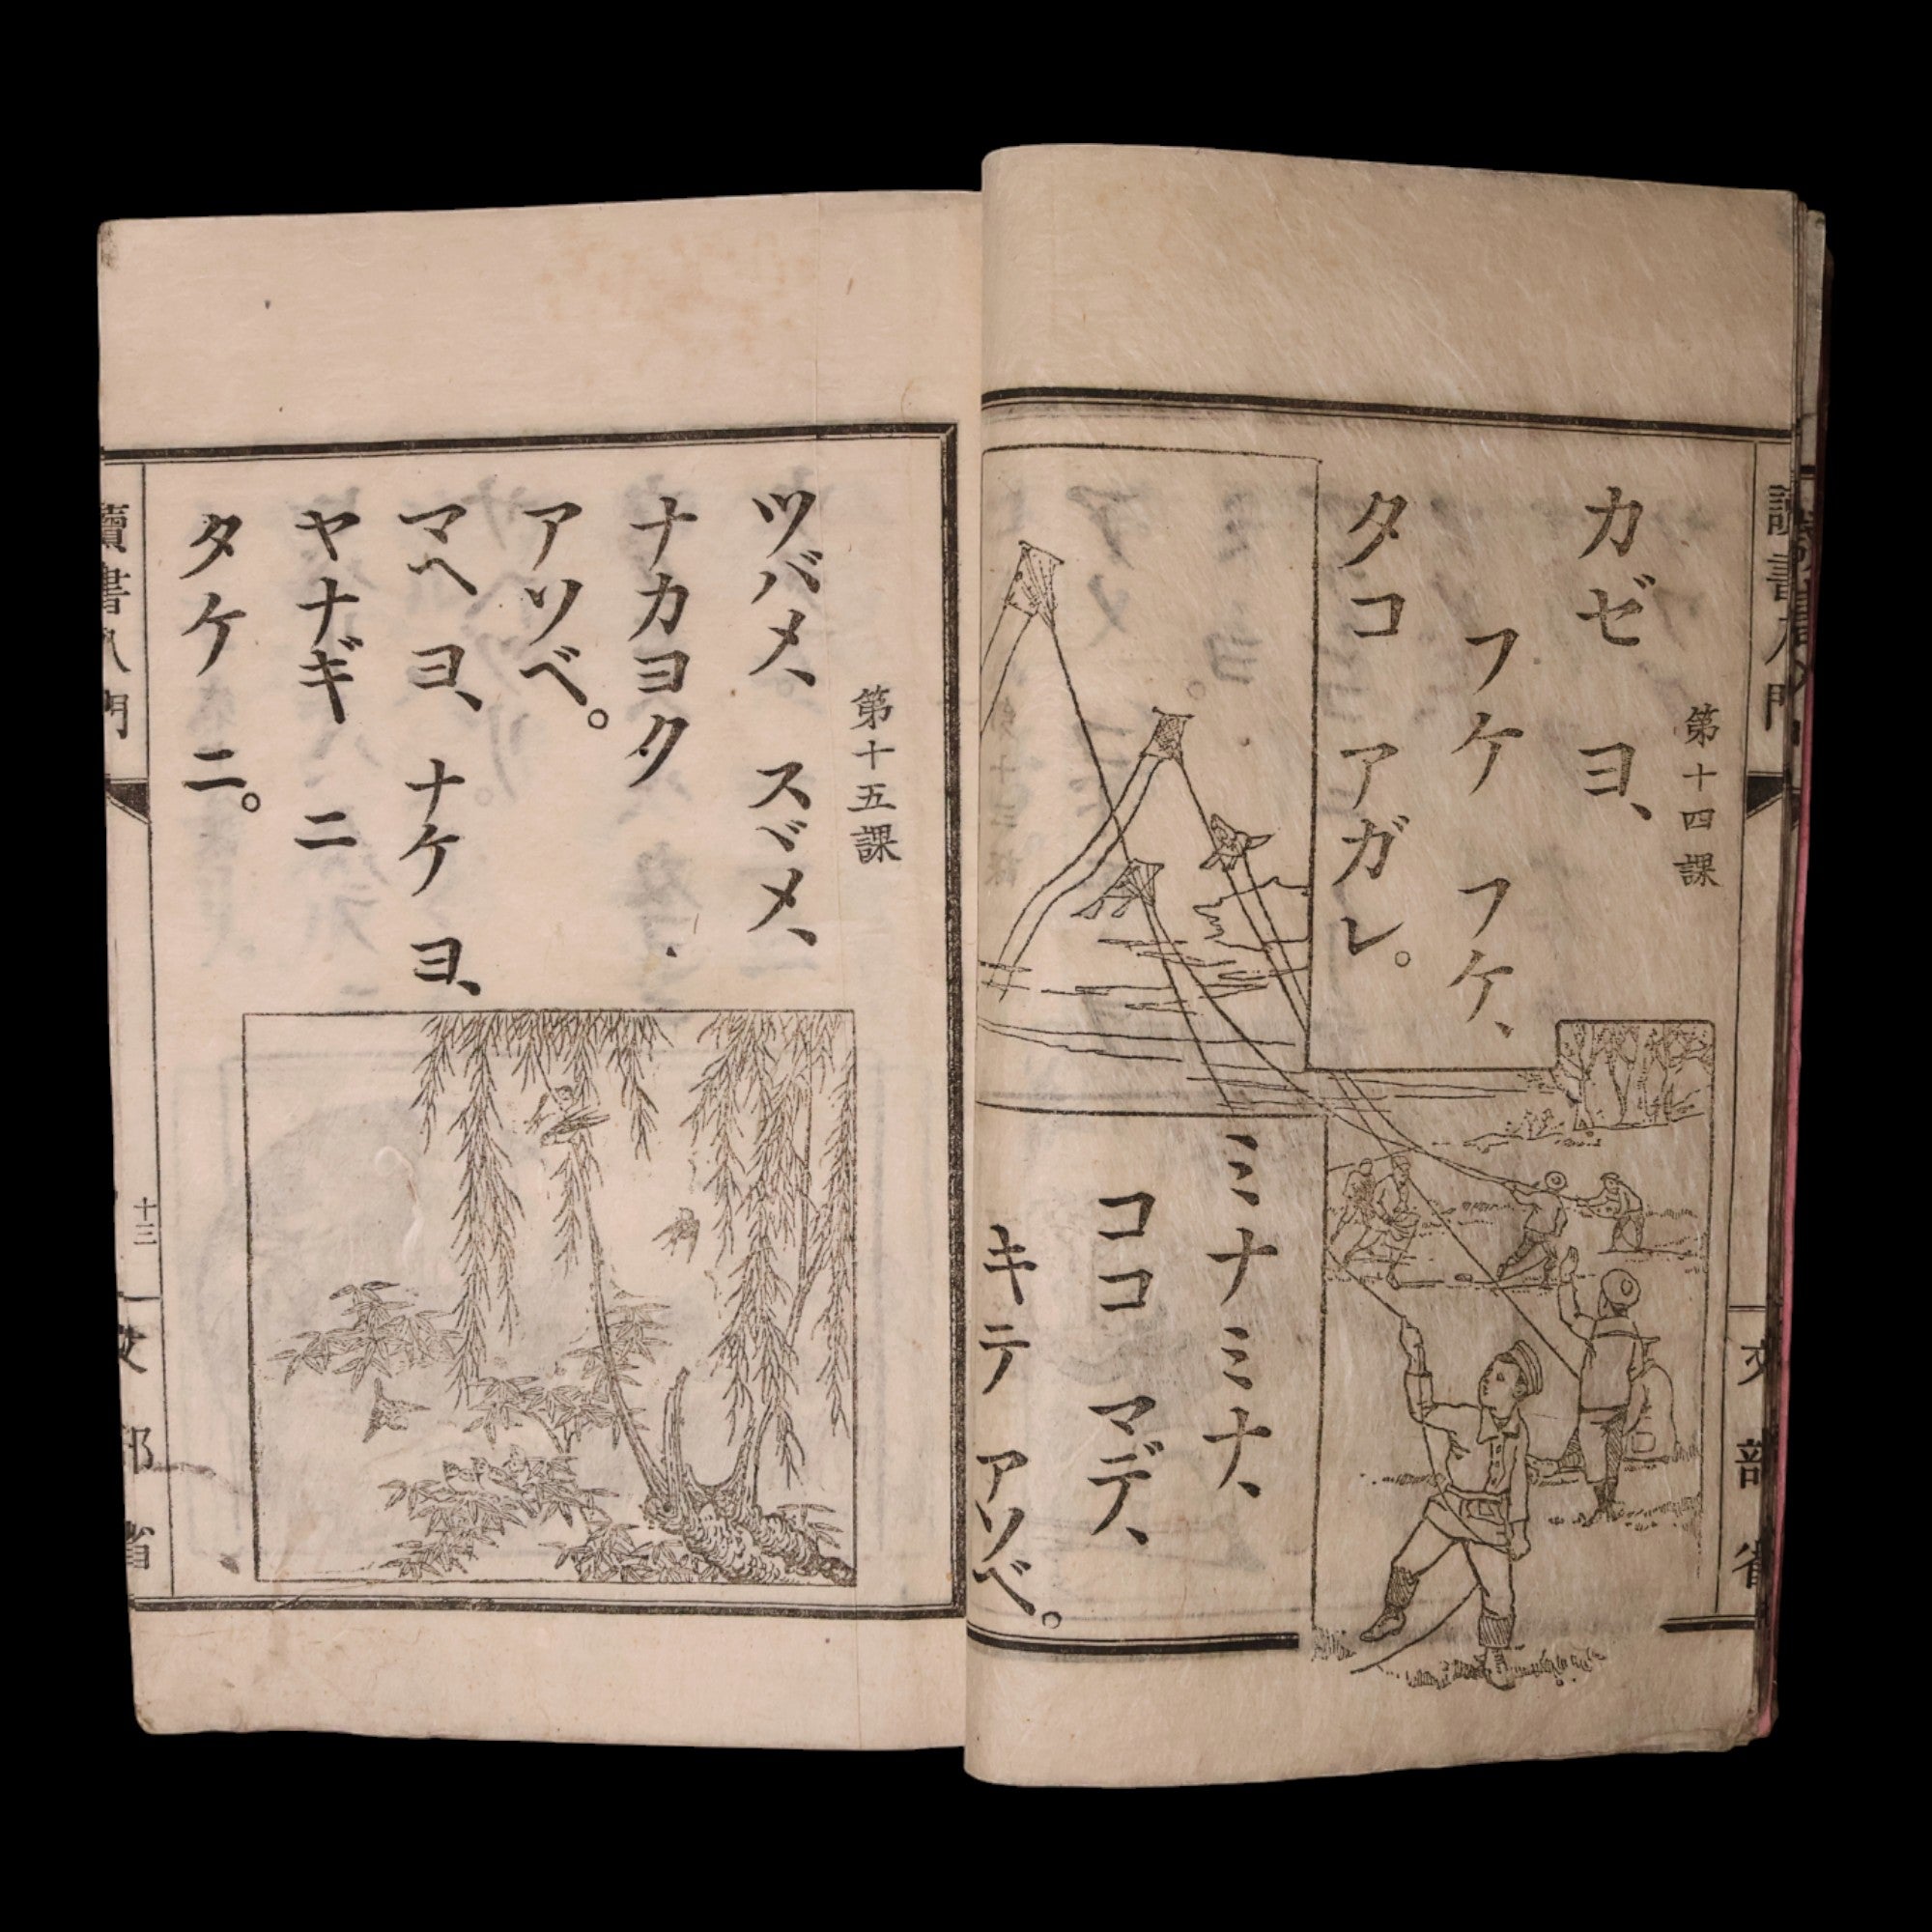 第十四課
カゼ ヨ、
フケ フケ、
タコ アガレ。
ミナミナ、
ココ マデ、
キテ アソベ。
文部省
第十五課
ツバメ、 スヾメ、
ナカヨク
アソベ。
マヘ ヨ、 ナケ ヨ、
ヤナギ ニ
タケ ニ。
讀書入門
十三
文部省